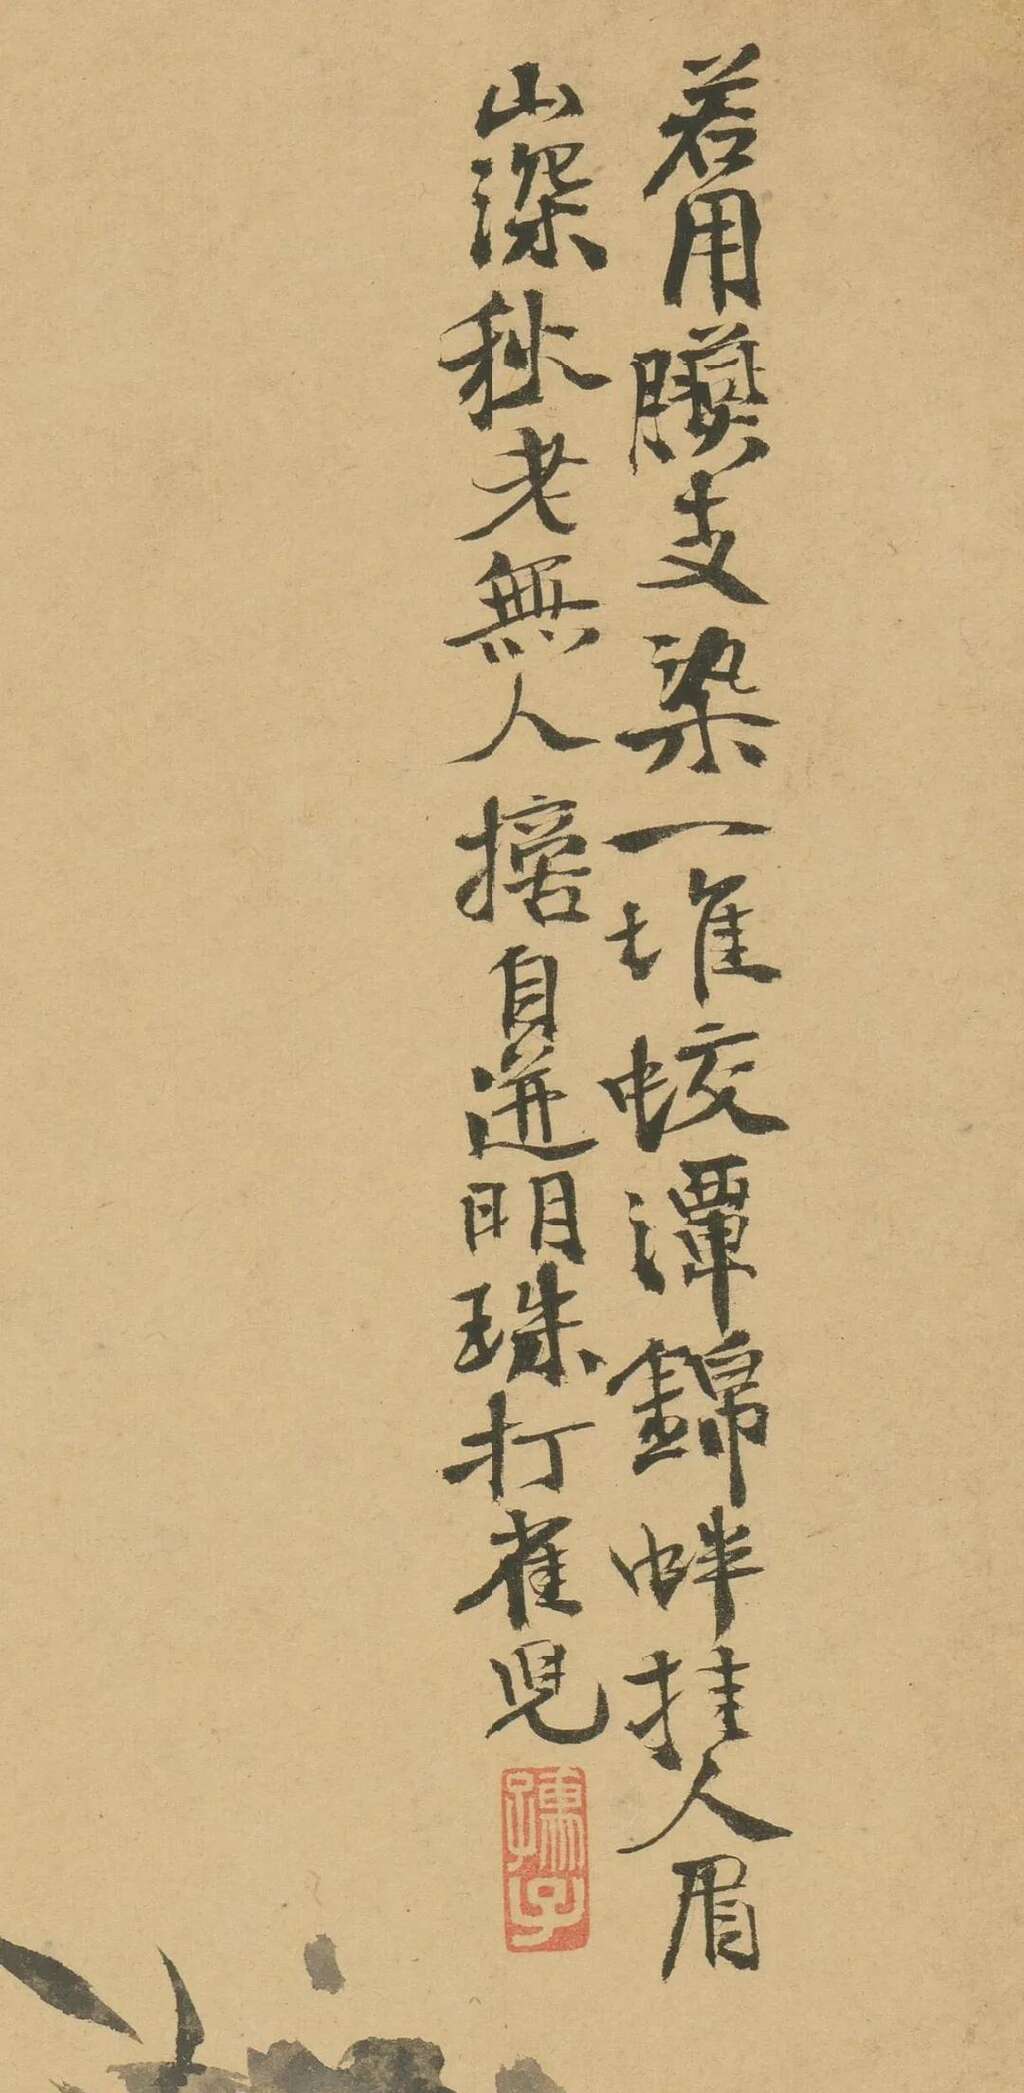 若用臙支染一堆蛟潭錦蚌挂人眉
山深秋老無人摘自迸明珠打雀兒
孺子